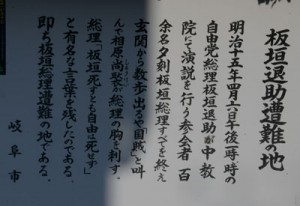 板垣退助遭難の地
明治十五年四月六日午後一時の
自由党総理板垣退助が中教
院にて演説を行う参会者百
余名夕刻板垣総理すべてを終え
玄関から数歩出るや「国賊」と叫
んで相原尚褧が総理の胸を刺す。
総理「板垣死すとも自由は死せず」
と有名な言葉を残したのである。
即ち板垣総理遭難の地である。
岐阜市